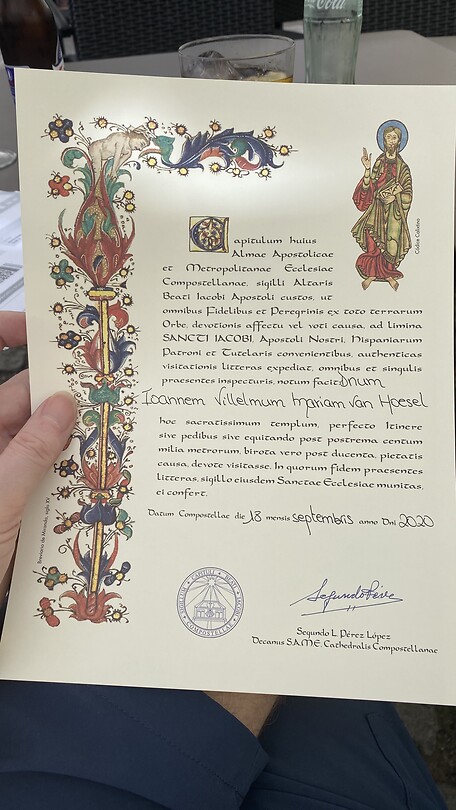 Cola
Carlos Cafarino
Capitulum huius
Almae Apostolicae
et Metropolitanae Ecclesiae
Compostellanae, sigilli Altaris
Beati Iacobi Apostoli custos, ut
omnibus Fidelibus et Peregrinis ex toto terrarum
Orbe, devotionis affectu vel voti causa, ad limina
SANCTI IACOBI, Apostoli Nostri, Hispaniarum
Patroni et Tutelaris convenientibus, authenticas
visitationis litteras expediat, omnibus et singulis
praesentes inspecturis, notum facit: Dnum
Ioannem Villelmum Mariam Van Hoesel
hoc sacratissimum templum, perfecto Itinere
sive pedibus sive equitando post postrema centum
milia metrorum, birota vero post ducenta, pietatis
causa, devote visitasse. In quorum fidem praesentes
litteras, sigillo eiusdem Sanctae Ecclesiae munitas,
ei confert.
Datum Compostellae die 18 mensis septembris anno Dni 2020
Breviario de Miranda, siglo XV
SIGILLUM CAPITULI BEATI IACOBI COMPOSTELLAE
Segundo Pérez
Segundo L. Pérez López
Decanus S.A.M.E. Cathedralis Compostellanae